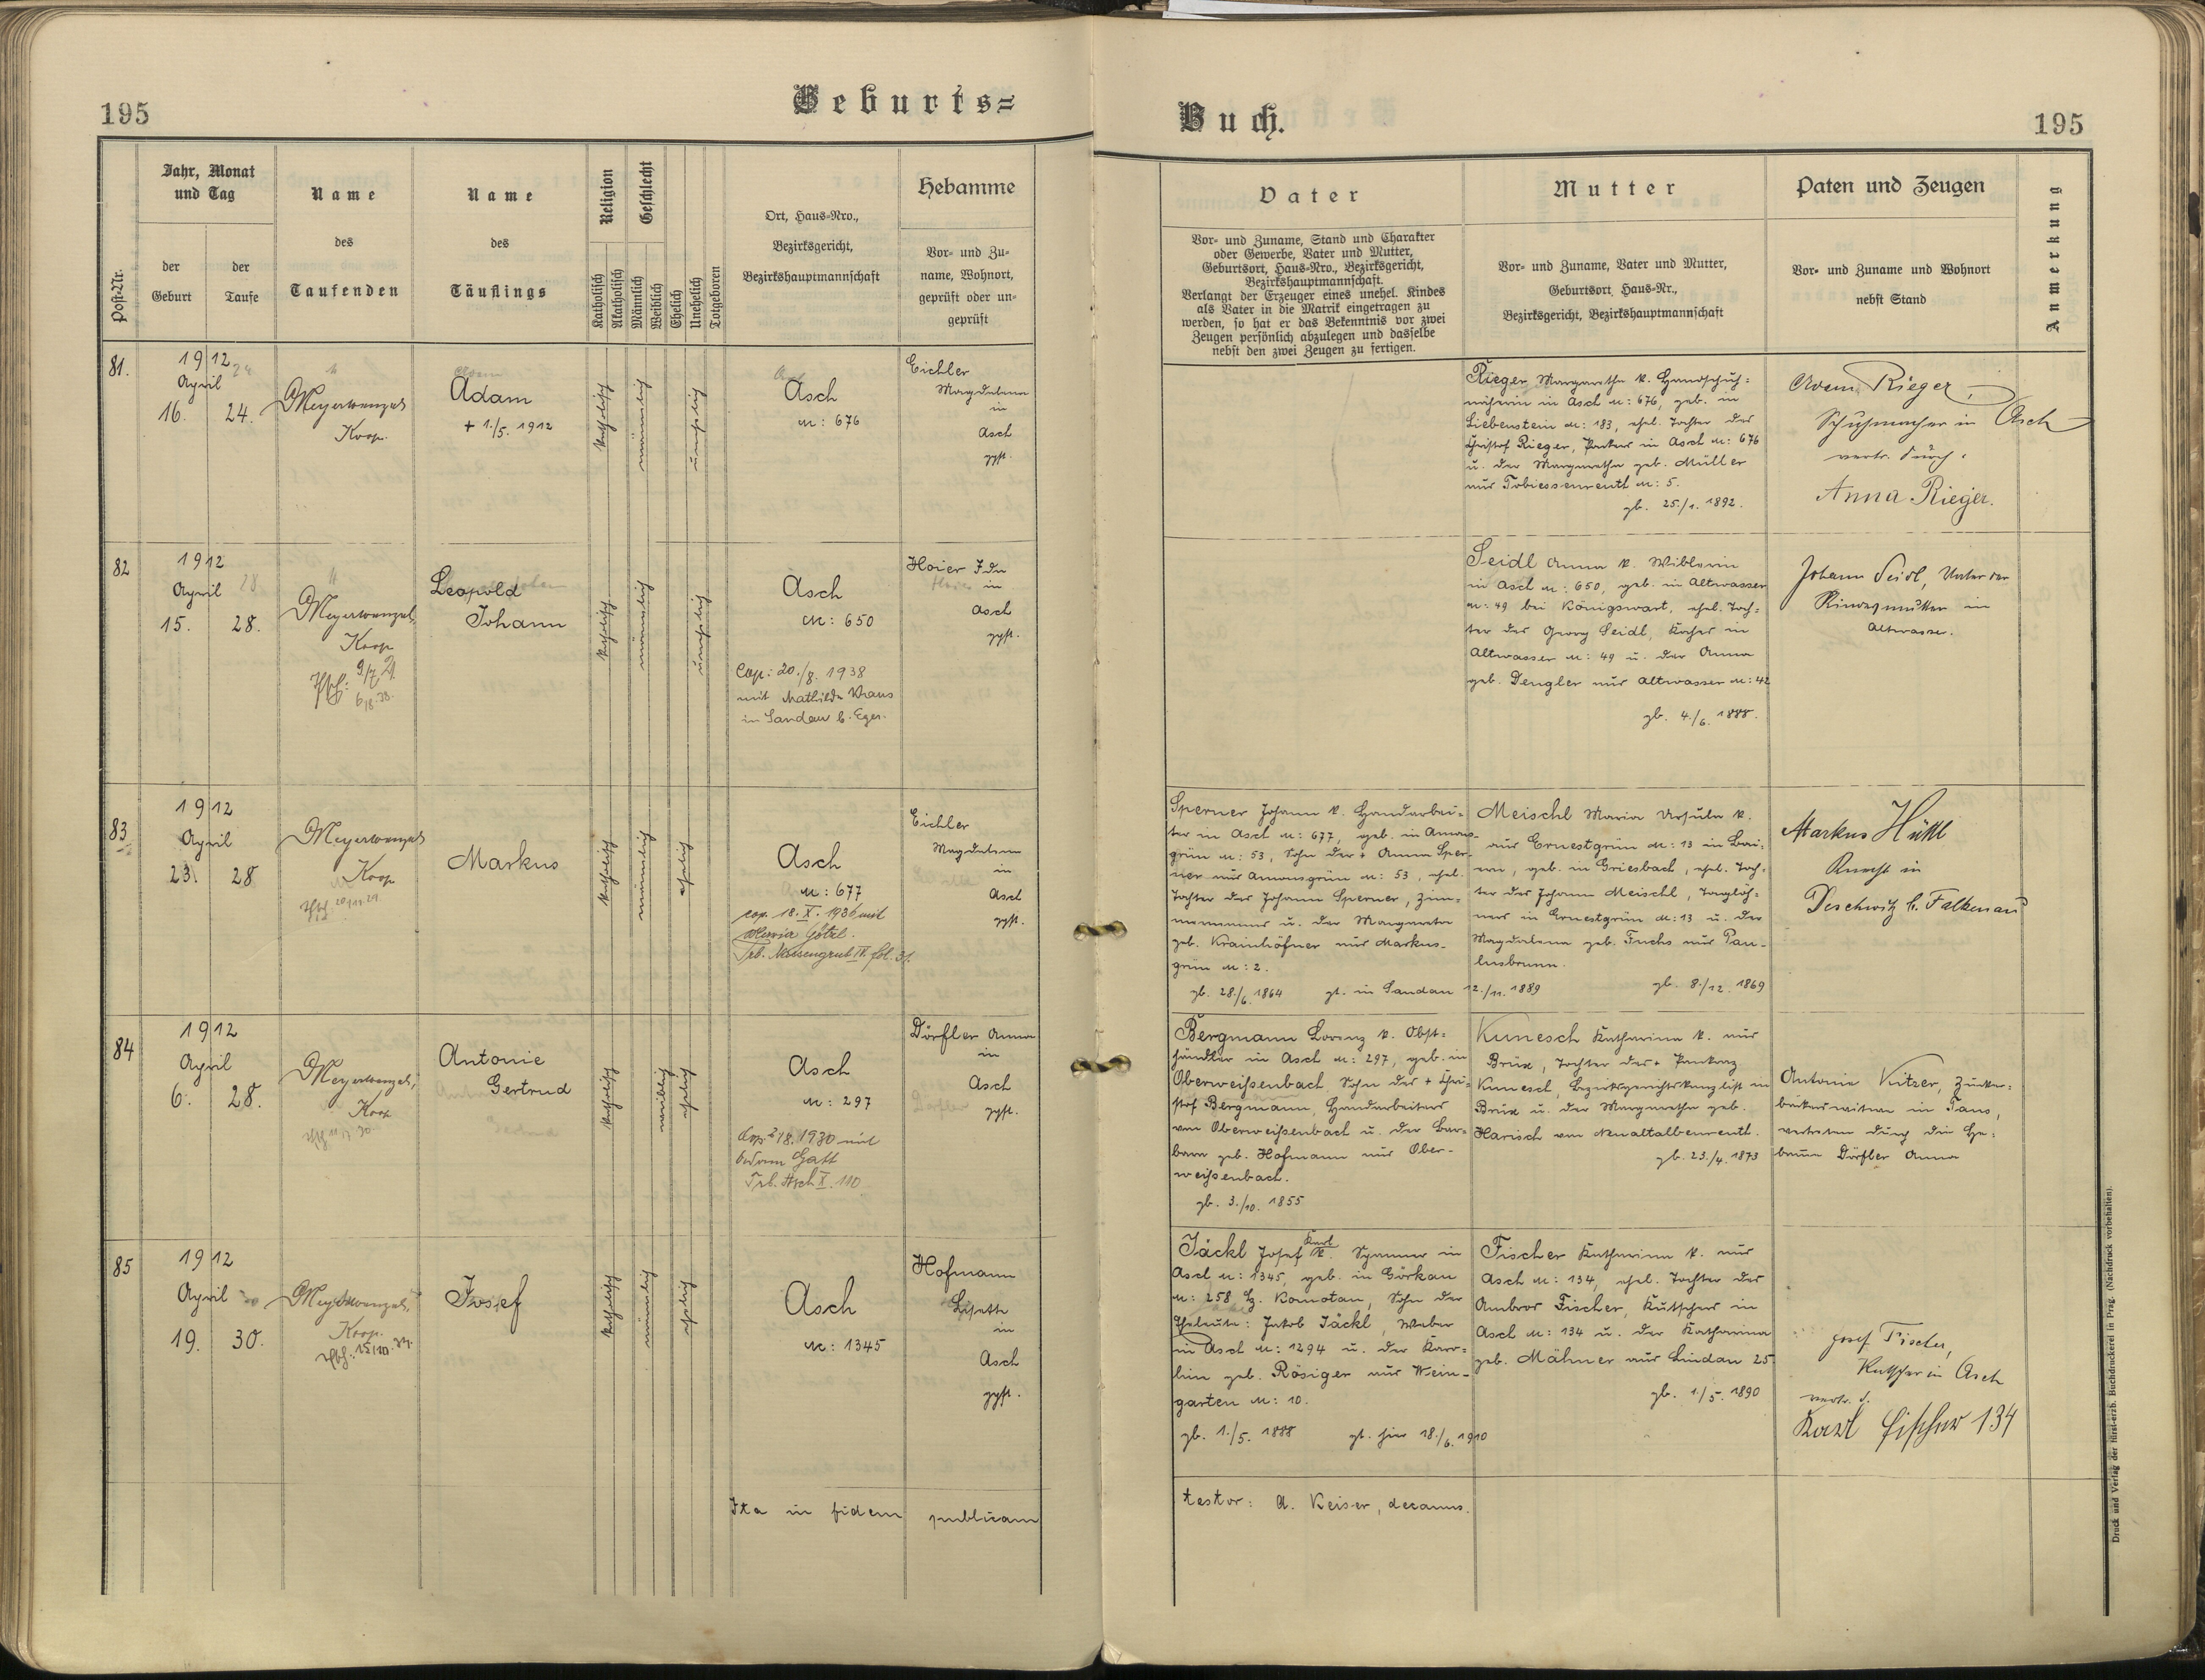 195
Geburts=
Post-Nr.
Jahr, Monat
und Tag
der
Geburt
der
Taufe
Name
des
Taufenden
Name
des
Täuflings
Religion
Geschlecht
Katholisch
Akatholisch
Männlich
Weiblich
Ehelich
Unehelich
Totgeboren
Ort, Haus-Nro.,
Bezirksgericht,
Bezirkshauptmannschaft
Hebamme
Vor- und Zu-
name, Wohnort,
geprüft oder un-
geprüft
81.
1912
April
16. 24.
Meyerwenzel
Koop.
Adam
+ 1./5. 1912
katholisch
männlich
unehelich
Asch
N: 676
Eichler
Magdalena
in
Asch
gpft.
82
1912
April
15. 28.
Meyerwenzel,
Koop
Leopold
Johann
katholisch
männlich
unehelich
Asch
N: 650
Cop: 20./8. 1938
mit Mathilde Kraus
in Sandau b. Eger.
Hoier Ida
in
Asch
gpft.
83
1912
April
23. 28
Meyerwenzel
Koop
Markus
katholisch
männlich
ehelich
Asch
N: 677
cop. 18. X. 1936 mit
Maria Götzl.
Trb. IV. fol. 31.
Eichler
Magdalena
in
Asch
gpft.
84
1912
April
6. 28.
Meyerwenzel,
Koop
Antonie
Gertrud
katholisch
weiblich
ehelich
Asch
N: 297
Cop. 2/8. 1930 mit
Gatt
Trb. Asch X. 110
Dörfler Anna
in
Asch
gpft.
85
1912
April
19. 30.
Meyerwenzel,
Koop.
Josef
katholisch
männlich
ehelich
Asch
N: 1345
Hofmann
Lisette
in
Asch
gpft.
Ita in fidem publicam
Buch.
195
Vater
Vor- und Zuname, Stand und Charakter
oder Gewerbe, Vater und Mutter,
Geburtsort, Haus-Nro., Bezirksgericht,
Bezirkshauptmannschaft.
Verlangt der Erzeuger eines unehel. Kindes
als Vater in die Matrik eingetragen zu
werden, so hat er das Bekenntnis vor zwei
Zeugen persönlich abzulegen und dasselbe
nebst den zwei Zeugen zu fertigen.
Mutter
Vor- und Zuname, Vater und Mutter,
Geburtsort, Haus-Nr.,
Bezirksgericht, Bezirkshauptmannschaft
Paten und Zeugen
Vor- und Zuname und Wohnort
nebst Stand
Anmerkung
Rieger Margaretha k. Handschuh=
näherin in Asch N: 676, geb. in
Liebenstein N: 183, ehel. Tochter des
Christof Rieger, in Asch N: 676
u. der Margaretha geb. Müller
aus Tobiessenreuth N: 5.
gb. 25./1. 1892.
Adam Rieger,
Schuhmacher in Asch
vertr. durch:
Anna Rieger.
Seidl Anna k. Weberin
in Asch N: 650, geb. in Altwasser
N: 49 bei Königswart, ehel. Toch=
ter des Georg Seidl, in
Altwasser N: 49 u. der Anna
geb. Dengler aus Altwasser N: 42
gb. 4./6. 1888.
Johann Seidl, Vater der
Kindesmutter in
Altwasser.
Sperner Johann k. Handarbei=
ter in Asch N: 677, geb. in Amons-
grün N: 53, Sohn der + Anna Sper-
ner aus Amonsgrün N: 53, ehel.
Tochter des Johann Sperner, Zim=
mermanns u. der Margareta
geb. Krainhöfner aus Markus-
grün N: 2.
gb. 28./6. 1864 gt. in Sandau 12./11. 1889
Meischl Maria Ursula k.
aus Ernestgrün N: 13 in Bai=
ern, geb. in Griesbach, ehel. Toch=
ter des Johann Meischl, Taglöh=
ners in Ernestgrün N: 13 u. der
Magdalena geb. Fuchs aus Pau-
lusbrunn.
gb. 8./12. 1869
Markus Hüttl
Knecht in
Deschwitz b. Falkenau
Bergmann Lorenz k. Obst=
händler in Asch N: 297, geb. in
Oberweißenbach Sohn des + Chri=
stof Bergmann, Handarbeiters
von Oberweißenbach u. der Bar=
bara geb. Hofmann aus Ober-
weißenbach.
gb. 3./10. 1855
Kunesch Katharina k. aus
Brüx, Tochter des + Pankraz
Kunesch, Bezirksgerichtskanzlist in
Brüx u. der Margaretha geb.
Harisch von Neualtalbenreuth.
gb. 23./4. 1873
Antonie Kitzer, Zucker=
bäckerswitwe in Taus,
vertreten durch die He=
bamme Dörfler Anna
Jäckl Josef Karl k. Spanner in
Asch N: 1345, geb. in Görkau
N: 258 Bz. Komotau, Sohn der
Eheleute: Jakob Jäckl, Weber
in Asch N: 1294 u. der Karo=
lina geb. Rösiger aus Wein-
garten N: 10.
gb. 1./5. 1888 gt. hier 18./6. 1910
Fischer Katharina k. aus
Asch N: 134, ehel. Tochter des
Ambros Fischer, Kutscher in
Asch N: 134 u. der Katharina
geb. Mähner aus Lindau 25
gb. 1./5. 1890
Josef Fischer,
Kutscher in Asch
vertr. d.
Karl Fischer 134
testor: A. Keiser, decanus.
Druck und Verlag der fürst-erzb. Buchdruckerei in Prag. (Nachdruck vorbehalten).